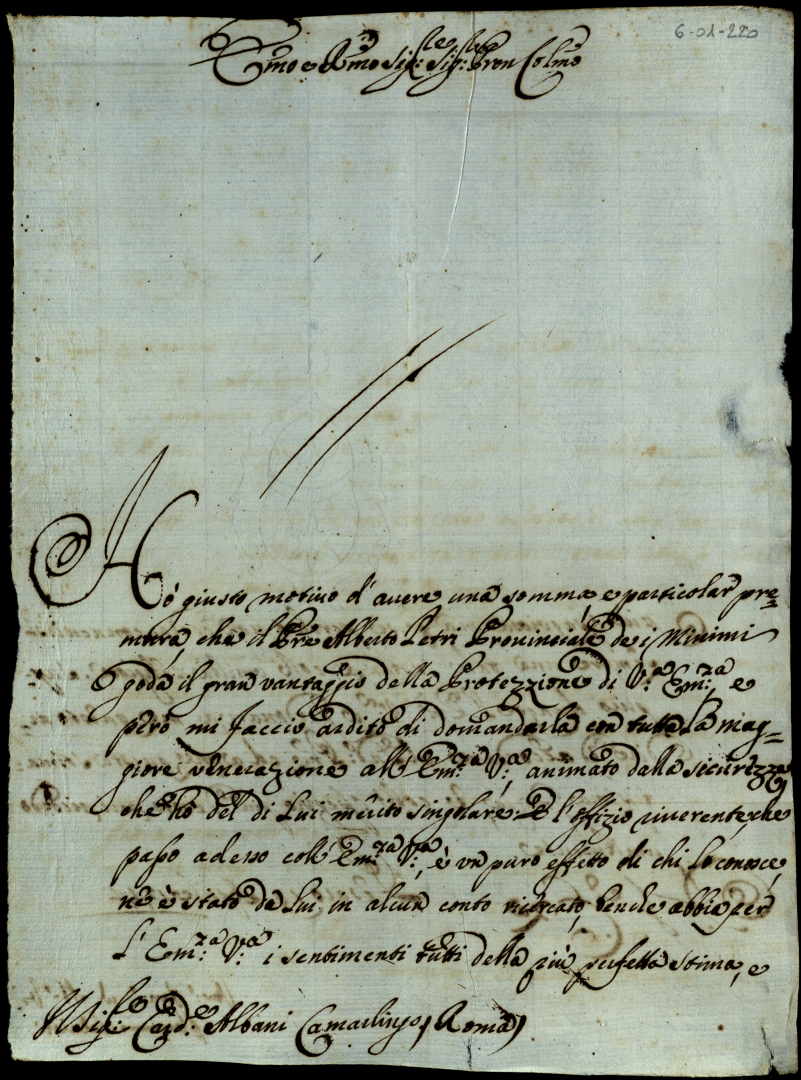 6-01-220
Emo e Rmo Sig:re Sig:re Pron Colmo
Hò giusto motivo d'avere una somma, e particolar pre=
mura, che il Pre Alberto Petri Provinciale de i Minimi
goda il gran vantaggio della Protezzione di V:a Em:za, e
però mi faccio ardito di domandarla con tutta la mag=
giore venerazione all'Em:za V:a, animato dalla sicurezza,
che hò del di Lui merito singolare: E l'offizio riverente, che
passo adesso coll'Em:za V:a, è un puro effetto di chi lo conosce,
nè è stato da Lui in alcun conto ricercato, benche abbia per
l'Em:za V:a i sentimenti tutti della più perfetta stima, e
Sig:re Card:e Albani Camarlingo, Roma